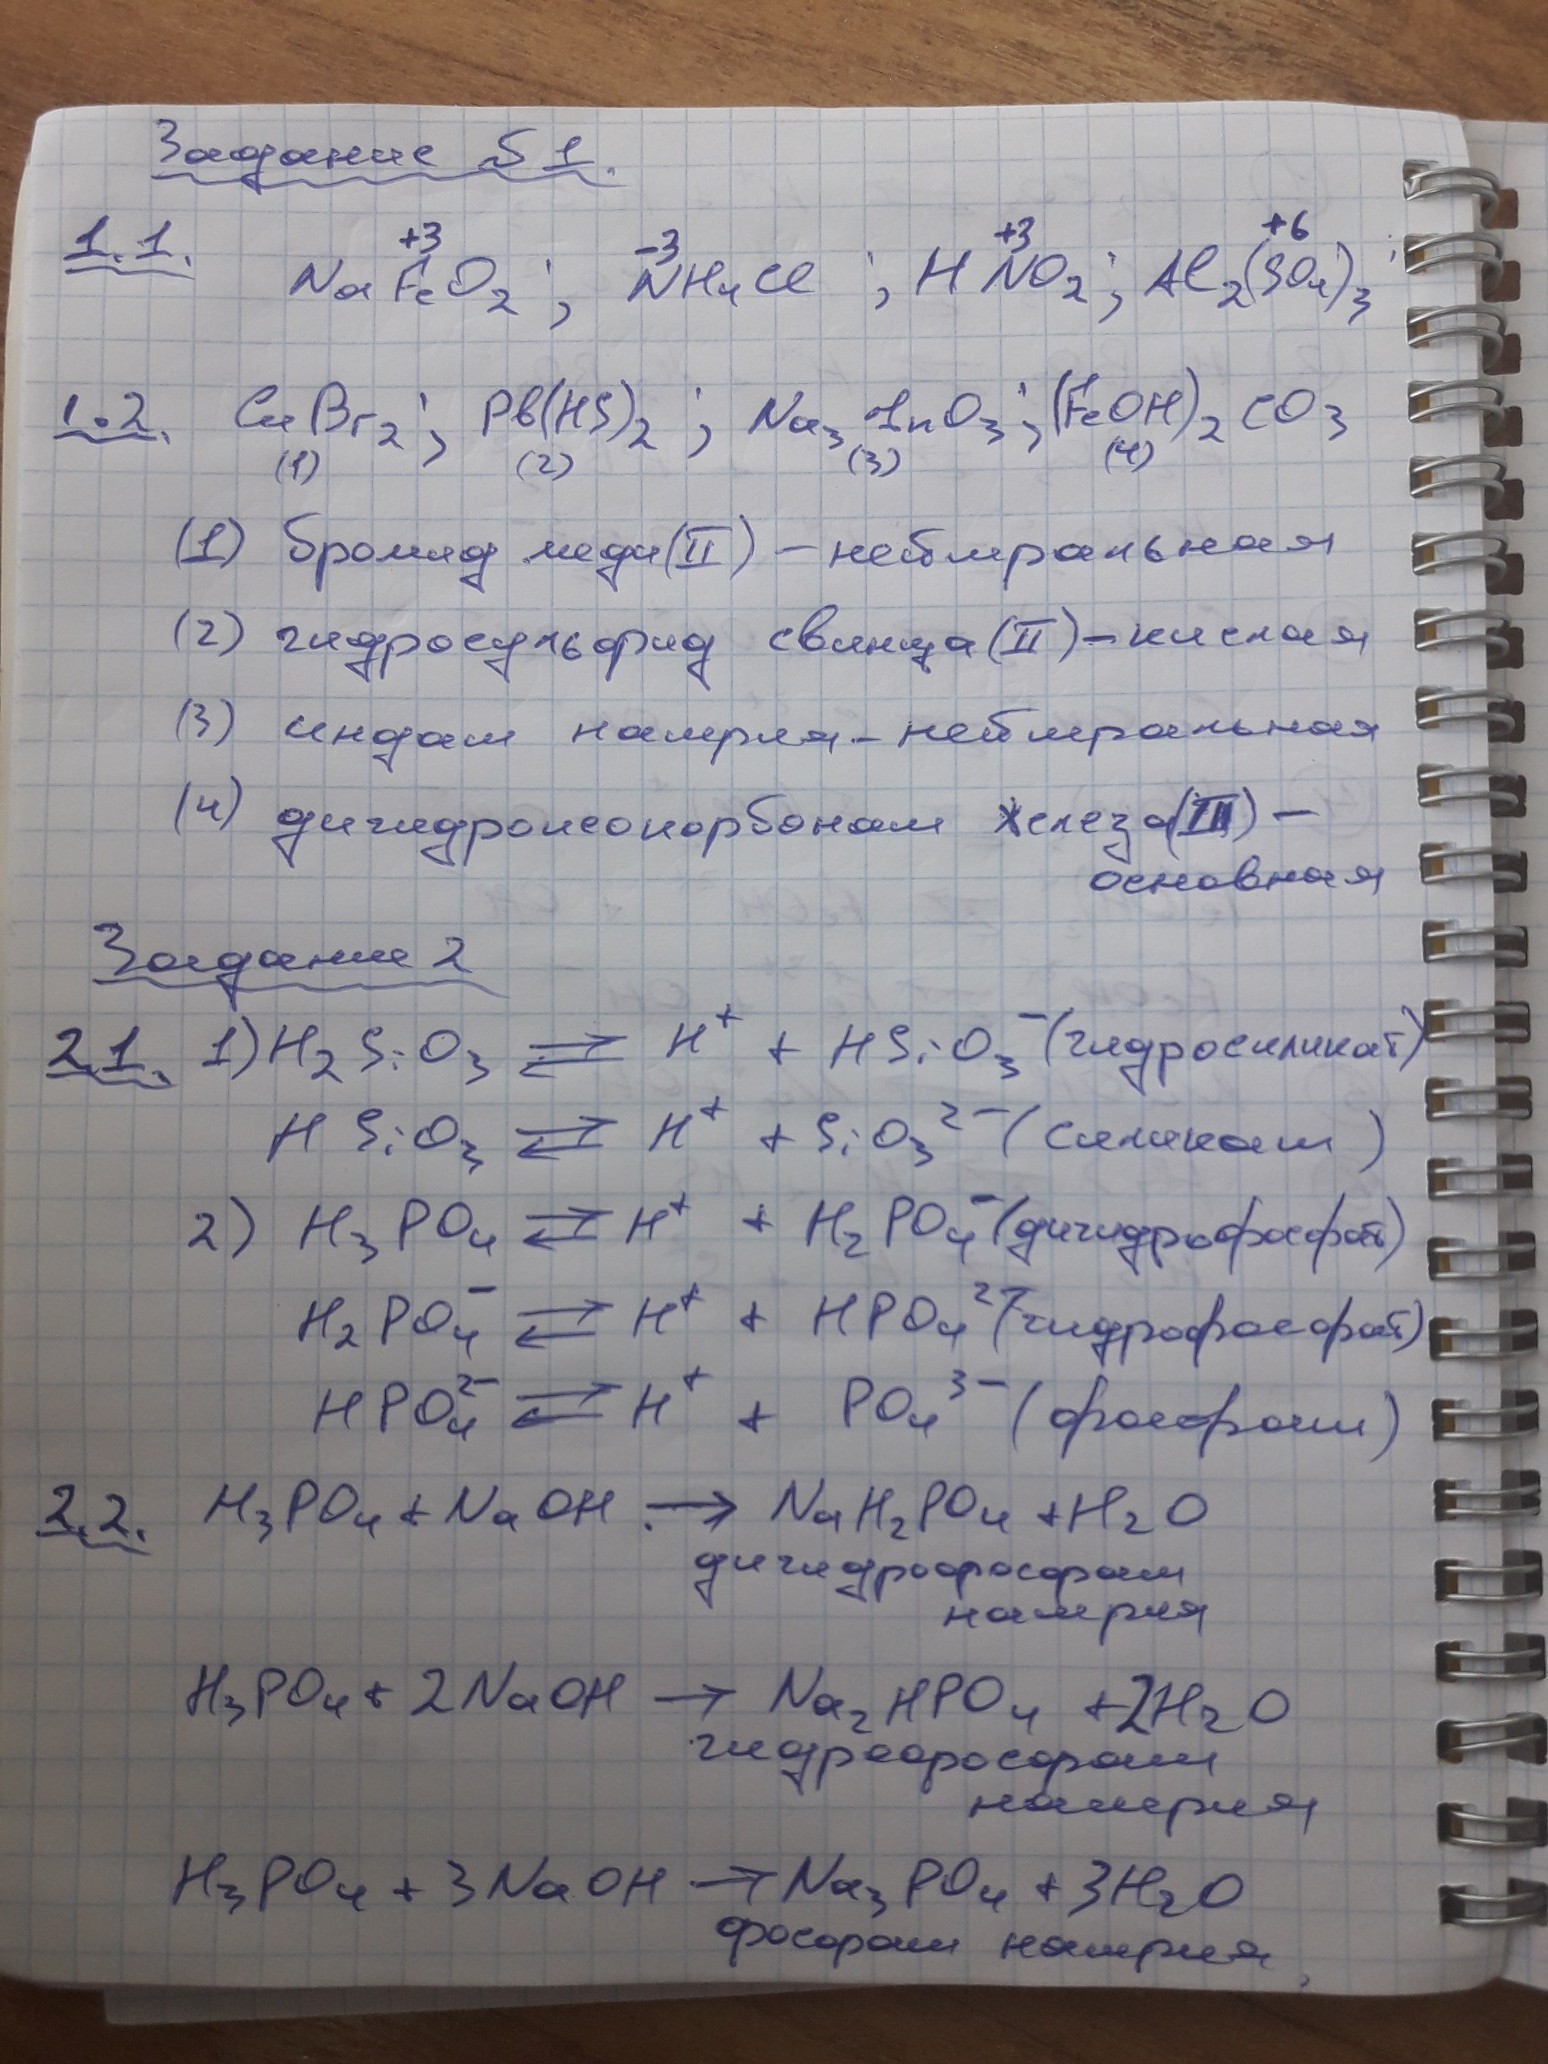 Задание Б1.
1.1. +3 -3 +3 +6
NaFeO2; NH4Cl; HNO2; Al2(SO4)3;
1.2. CuBr2; Pb(HS)2; Na3InO3; (FeOH)2CO3
(1) (2) (3) (4)
(1) бромид меди (II) – нейтральная
(2) гидросульфид свинца (II) – кислая
(3) индат натрия – нейтральная
(4) дигидроксокарбонат железа (III) –
основная
Задание 2
2.1. 1) H2SiO3 ⇄ H+ + HSiO3- (гидросиликат)
HSiO3 ⇄ H+ + SiO3 2- (силикат)
2) H3PO4 ⇄ H+ + H2PO4- (дигидрофосфат)
H2PO4- ⇄ H+ + HPO4 2- (гидрофосфат)
HPO4 2- ⇄ H+ + PO4 3- (фосфат)
2.2. H3PO4 + NaOH → NaH2PO4 + H2O
дигидрофосфат
натрия
H3PO4 + 2NaOH → Na2HPO4 + 2H2O
гидрофосфат
натрия
H3PO4 + 3NaOH → Na3PO4 + 3H2O
фосфат натрия